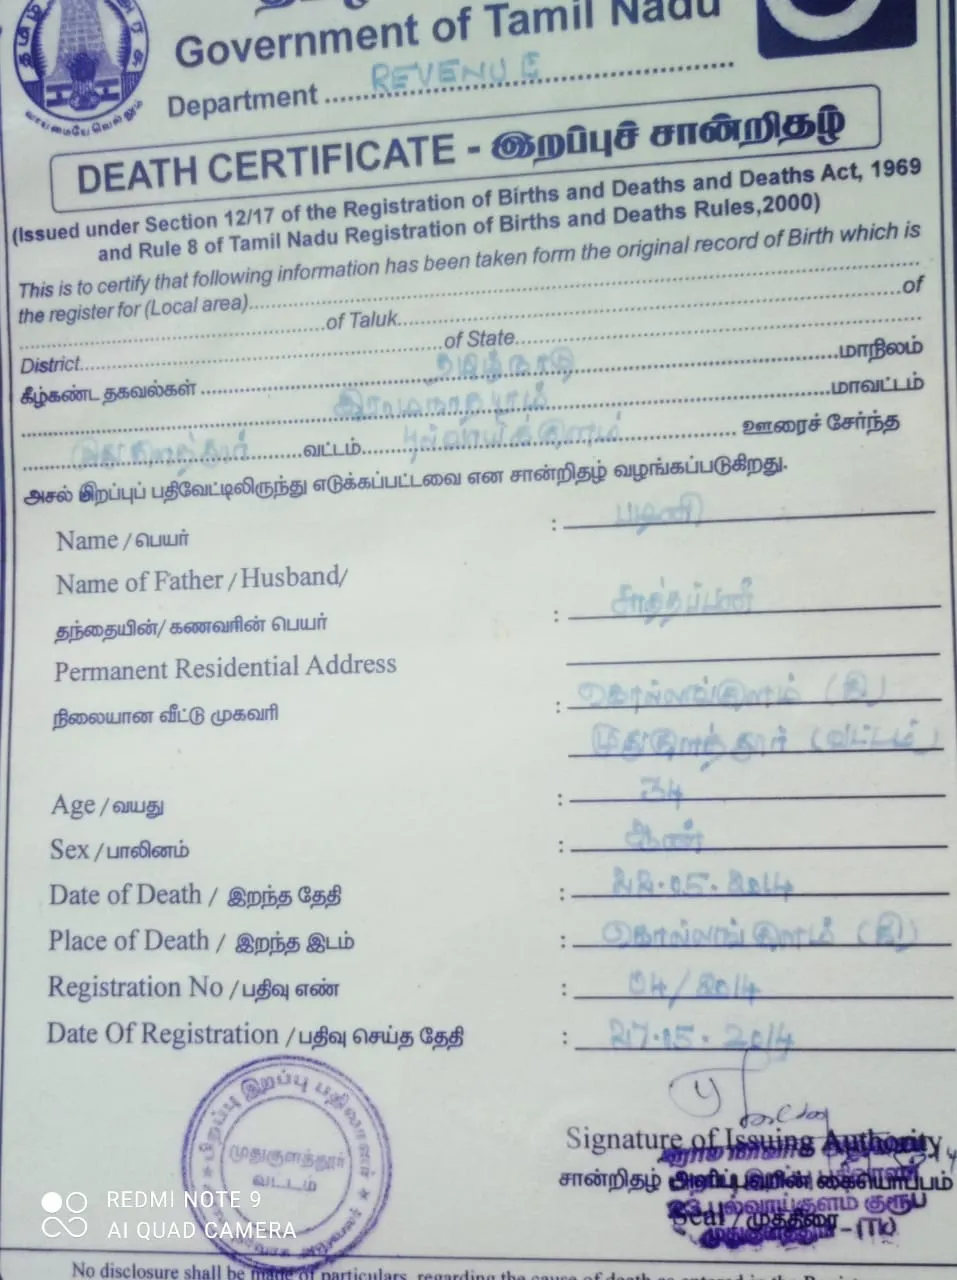 Government of Tamil Nadu
Department REVENUE
DEATH CERTIFICATE - இறப்புச் சான்றிதழ்
(Issued under Section 12/17 of the Registration of Births and Deaths and Deaths Act, 1969
and Rule 8 of Tamil Nadu Registration of Births and Deaths Rules,2000)
This is to certify that following information has been taken form the original record of Birth which is
the register for (Local area)
of Taluk of
District of State
கீழ்கண்ட தகவல்கள் தமிழ்நாடு மாநிலம்
இராமநாதபுரம் மாவட்டம்
முதுகுளத்தூர் வட்டம் புல்வாய்க்குளம் ஊரைச் சேர்ந்த
அசல் இறப்புப் பதிவேட்டிலிருந்து எடுக்கப்பட்டவை என சான்றிதழ் வழங்கப்படுகிறது.
Name / பெயர் : பழனி
Name of Father / Husband/
தந்தையின்/ கணவரின் பெயர் : சாத்தப்பன்
Permanent Residential Address
நிலையான வீட்டு முகவரி : கொல்லங்குளம் (கி)
முதுகுளத்தூர் (வட்டம்)
Age / வயது : 34
Sex / பாலினம் : ஆண்
Date of Death / இறந்த தேதி : 22.05.2014
Place of Death / இறந்த இடம் : கொல்லங்குளம் (கி)
Registration No / பதிவு எண் : 04/2014
Date Of Registration / பதிவு செய்த தேதி : 27.05.2014
பிறப்பு இறப்பு பதிவாளர்
முதுகுளத்தூர்
வட்டம்
Signature of Issuing Authority
சான்றிதழ் அளிப்பவரின் கையொப்பம்
23 புல்வாய்குளம் குரூப்
Seal / முத்திரை
முதுகுளத்தூர் - (TK)
REDMI NOTE 9
AI QUAD CAMERA
No disclosure shall be made of particulars, regarding the cause of death as entered in the